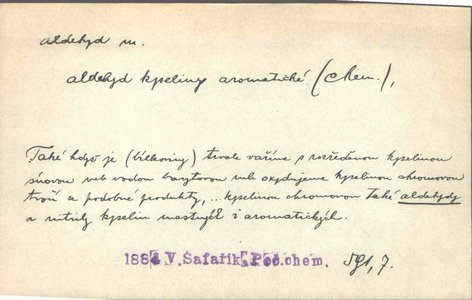 aldehyd m.
aldehyd kyseliny aromatické (chem.),
Také když je (bílkoviny) trvale vaříme s rozředěnou kyselinou
sírovou neb vodou barytovou neb oxydujeme kyselinou chromovou
tvoří a podobné produkty, ... kyselinou chromovou také aldehydy
a nitrily kyselin mastných i aromatických.
188 V. Šafařík, Poč. chem. 591, 7.